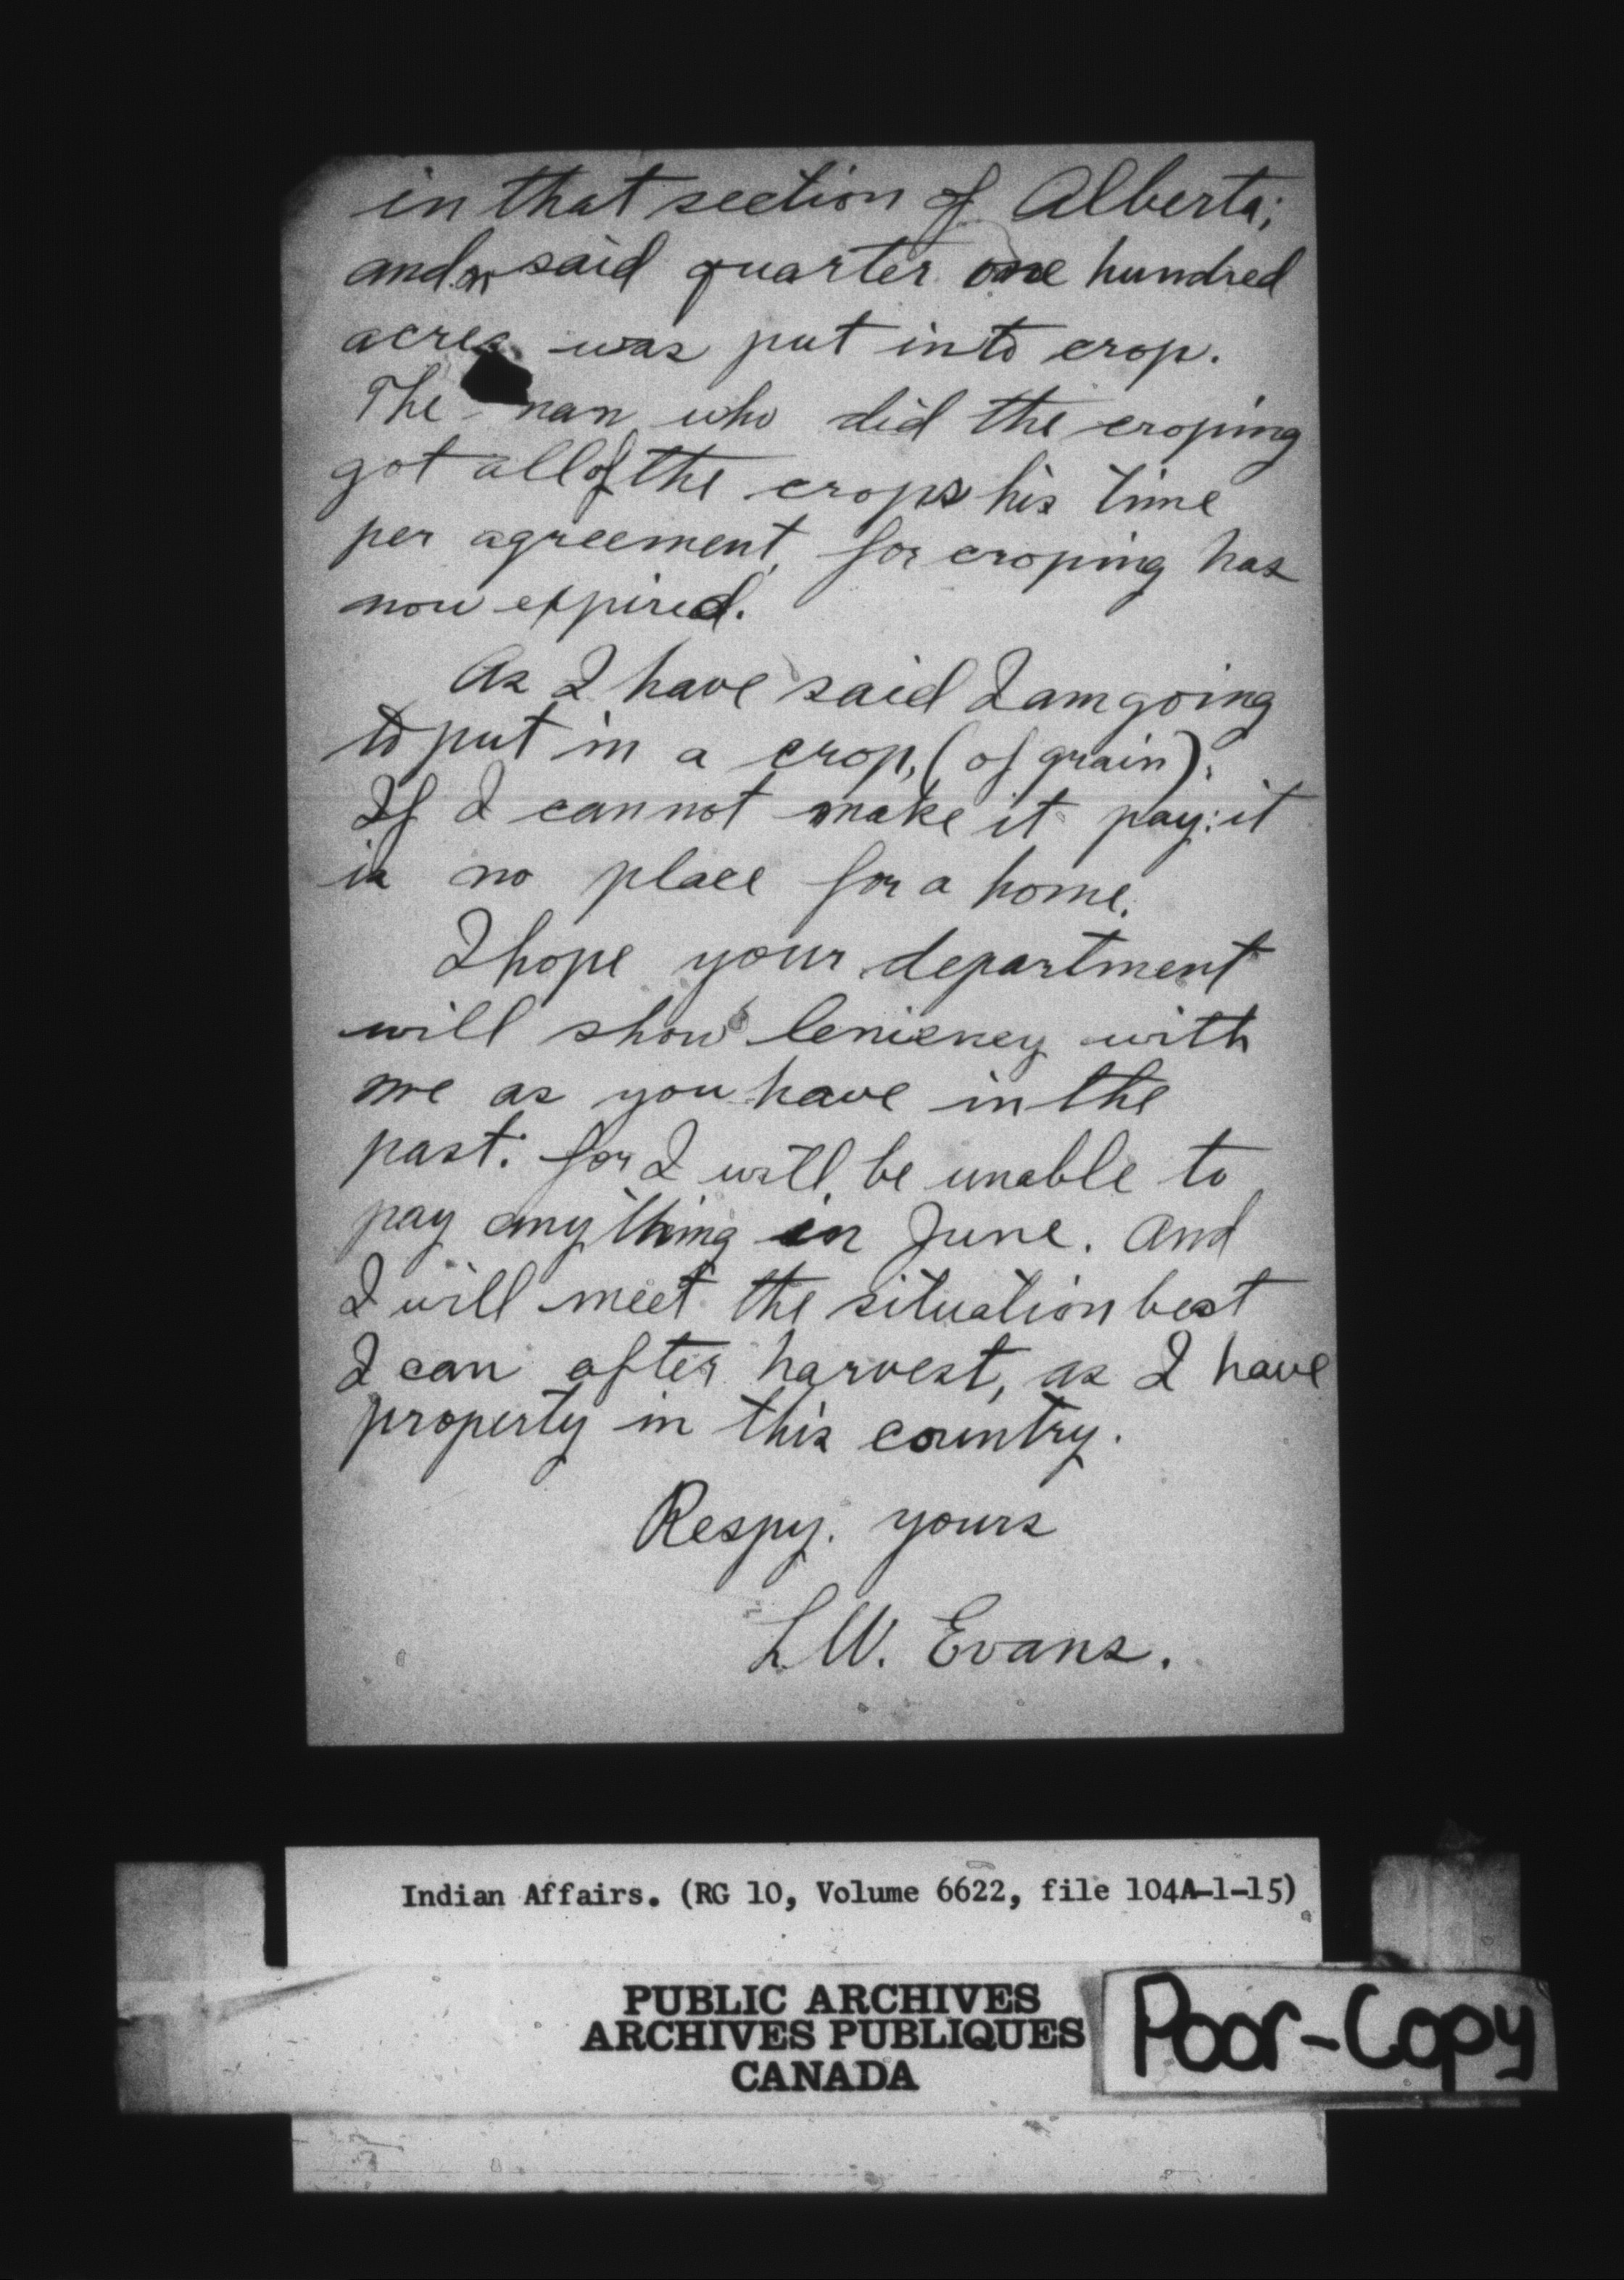 in that section of Alberta;
and on said quarter one hundred
acres was put into crop.
The man who did the croping
got all of the crops his time
per agreement, for croping has
now expired.
As I have said I am going
to put in a crop, (of grain).
If I cannot make it pay: it
is no place for a home.
I hope your department
will show leniency with
me as you have in the
past: for I will be unable to
pay any thing in June. And
I will meet the situation best
I can after harvest, as I have
property in this country.
Respy. yours
L.W. Evans.
Indian Affairs. (RG 10, Volume 6622, file 104A-1-15)
PUBLIC ARCHIVES
ARCHIVES PUBLIQUES
CANADA
Poor-Copy